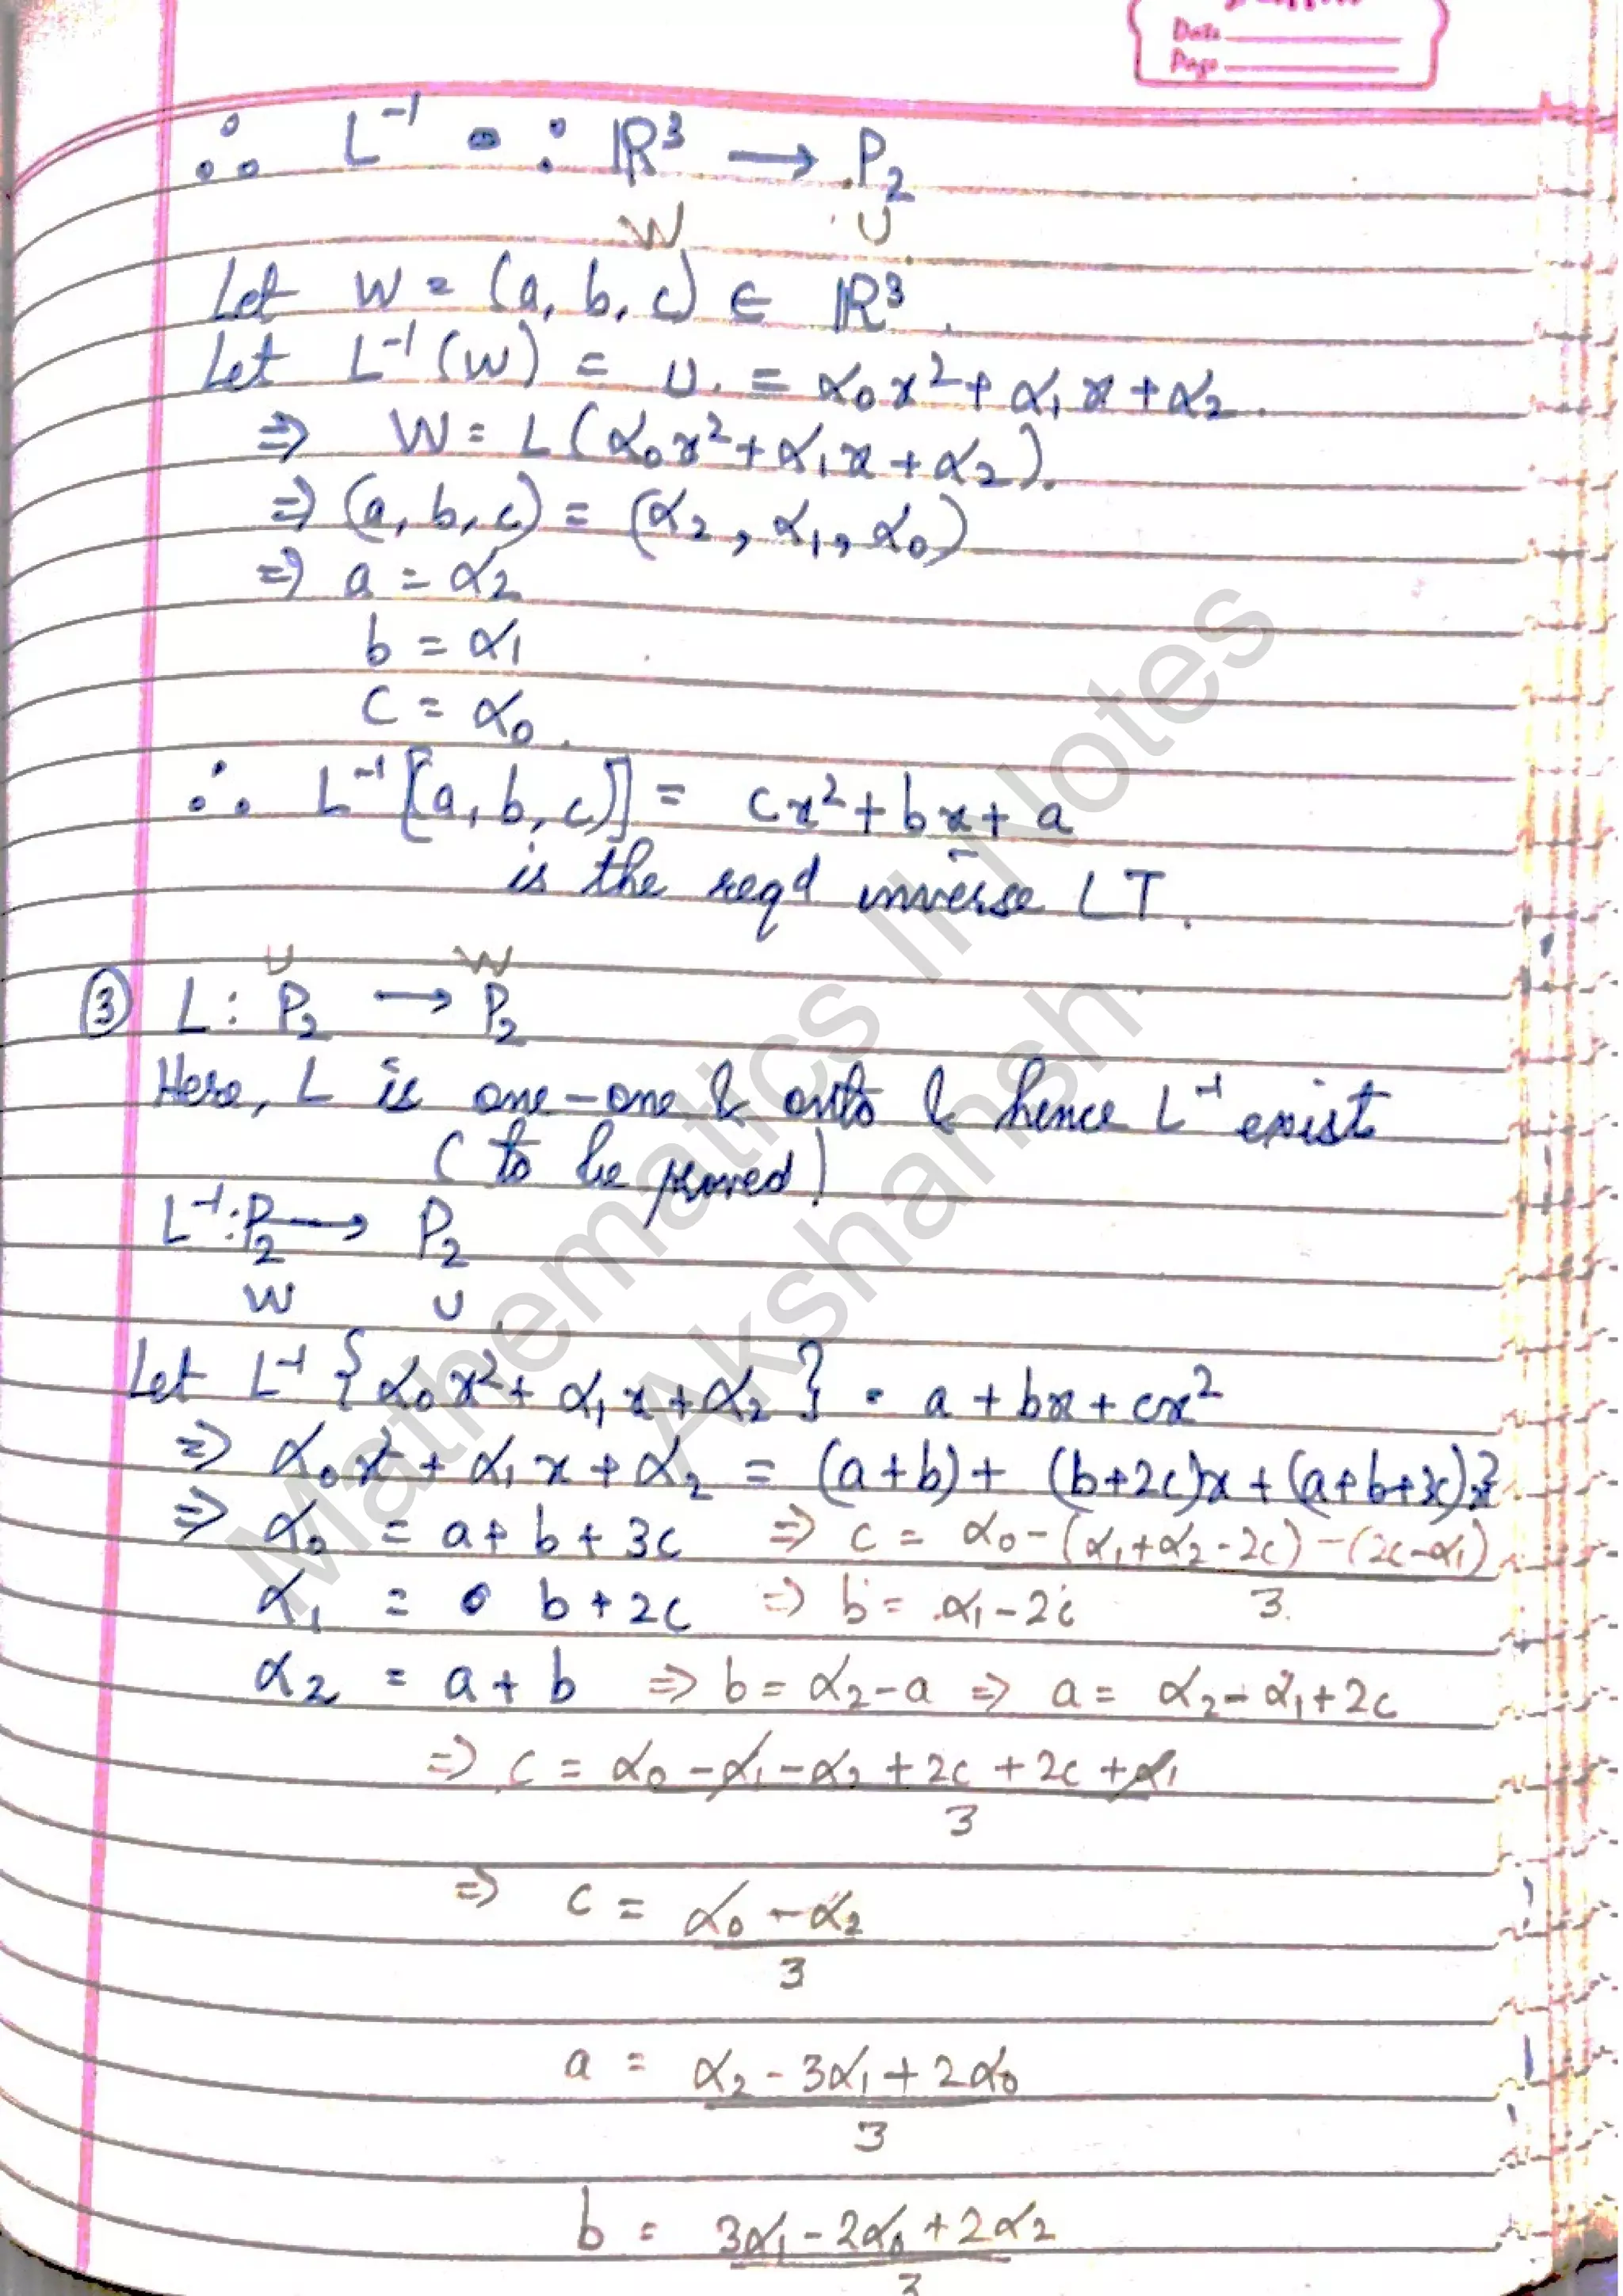 Date
Page
∴ L⁻¹ : ℝ³ → P₂
W U
Let W = (a, b, c) ∈ ℝ³.
Let L⁻¹(W) = U = α₀x² + α₁x + α₂.
⇒ W = L(α₀x² + α₁x + α₂).
⇒ (a, b, c) = (α₂, α₁, α₀)
⇒ a = α₂
b = α₁
c = α₀.
∴ L⁻¹[(a, b, c)] = cx² + bx + a
is the reqd inverse LT.
U W
③ L : P₂ → P₂
Here, L is one-one & onto & hence L⁻¹ exist
(to be proved)
L⁻¹: P₂ → P₂
W U
Let L⁻¹{α₀x² + α₁x + α₂} = a + bx + cx²
⇒ α₀x² + α₁x + α₂ = (a+b) + (b+2c)x + (a+b+3c)x²
⇒ α₀ = a + b + 3c ⇒ c = (α₀ - (α₁+α₂-2c) - (2c-α₁))/3
α₁ = b + 2c ⇒ b = α₁ - 2c
α₂ = a + b ⇒ b = α₂ - a ⇒ a = α₂ - α₁ + 2c
⇒ c = (α₀ - α₁ - α₂ + 2c + 2c + α₁)/3
⇒ c = (α₀ - α₂)/3
a = (α₂ - 3α₁ + 2α₀)/3
b = (3α₁ - 2α₀ + 2α₂)/3
Mathematics II Notes
Akshansh